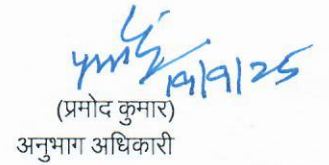 19/9/25
(प्रमोद कुमार)
अनुभाग अधिकारी